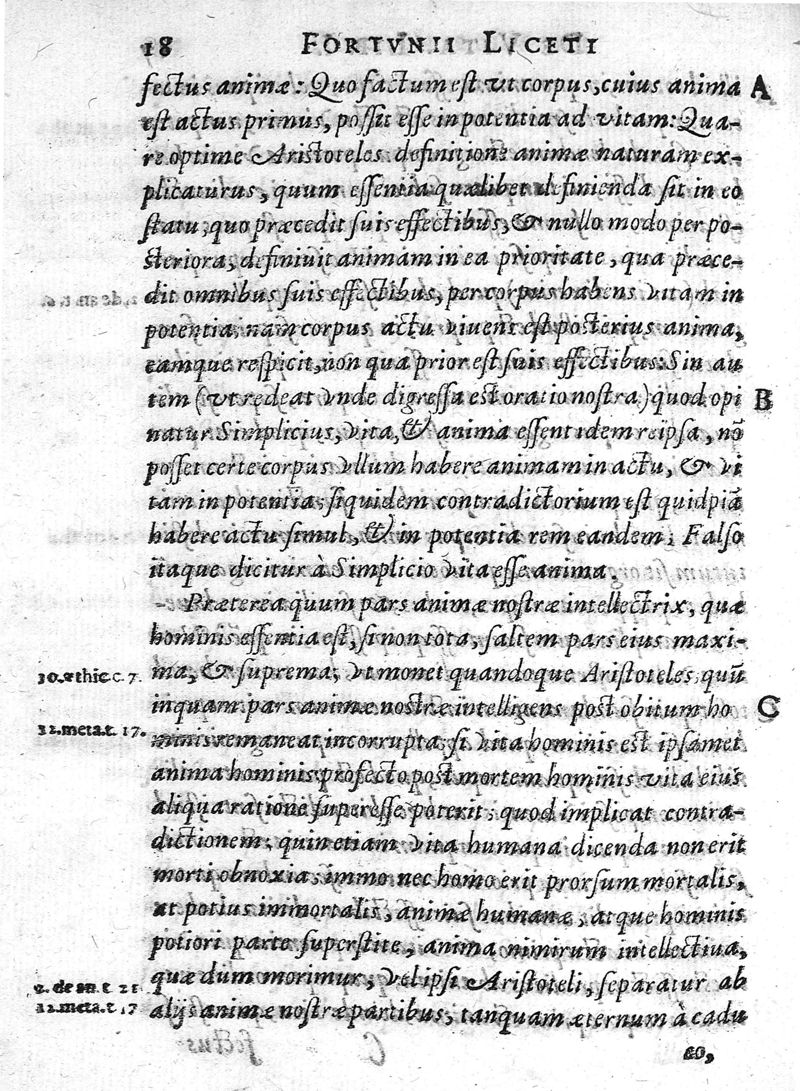 18 FORTVNII LICETI
fectus animæ: Quo factum est vt corpus, cuius anima A
est actus primus, possit esse in potentia ad vitam: Qua-
re optime Aristoteles definitione animæ naturam ex-
plicaturus, quum essentia quælibet definienda sit in eo
statu, quo præcedit suis effectibus, & nullo modo per po-
steriora, definiuit animam in ea prioritate, qua præce-
dit omnibus suis effectibus, per corpus habens vitam in
potentia, nam corpus actu viuens est posterius anima,
eamque respicit, non qua prior est suis effectibus: Sin au
tem (vt redeat vnde digressa est oratio nostra) quod opi B
natur Simplicius, vita, & anima essent idem reipsa, nō
posset certe corpus vllum habere animam in actu, & vi
tam in potentia; siquidem contradictorium est quidpiā
habere actu simul, & in potentia rem eandem; Falso
itaque dicitur à Simplicio vita esse anima.
Præterea quum pars animæ nostræ intellectrix, quæ
hominis essentia est, si non tota, saltem pars eius maxi-
10. ethic. c. 7. ma, & suprema; vt monet quandoque Aristoteles; quū
inquam pars animæ nostræ intelligens post obitum ho C
12. meta. t. 17. minis remaneat incorrupta, si vita hominis est ipsamet
anima hominis profecto post mortem hominis vita eius
aliqua ratione superesse poterit; quod implicat contra-
dictionem; quin etiam vita humana dicenda non erit
morti obnoxia; immo nec homo erit prorsum mortalis,
at potius immortalis, animæ humanæ, atque hominis
potiori parte superstite, anima nimirum intellectiua,
2. de an. t. 21 quæ dum morimur, vel ipsi Aristoteli, separatur ab
12. meta. t. 17 alijs animæ nostræ partibus, tanquam æternum à cadu
co,